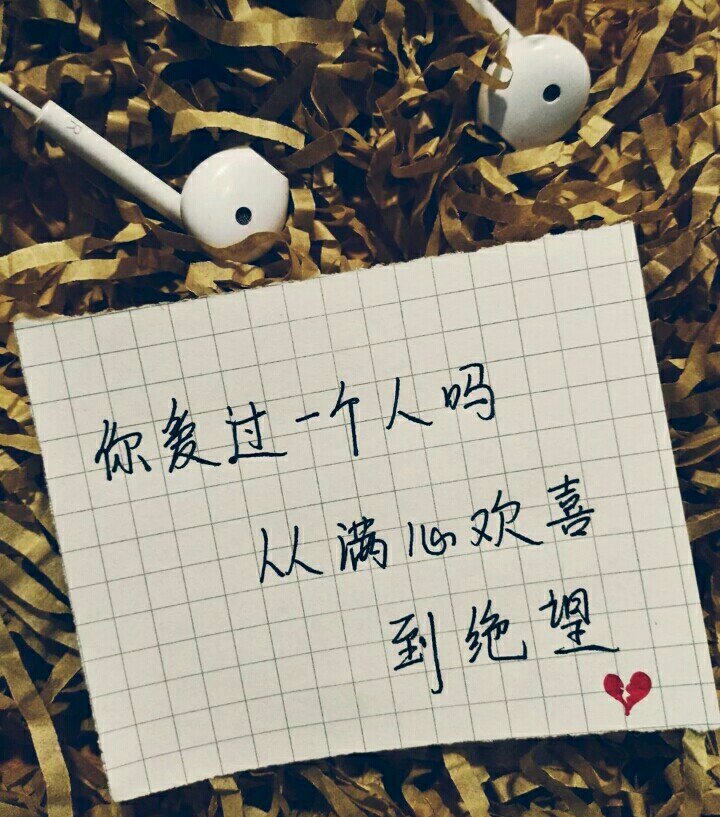 R
你爱过一个人吗
从满心欢喜
到绝望